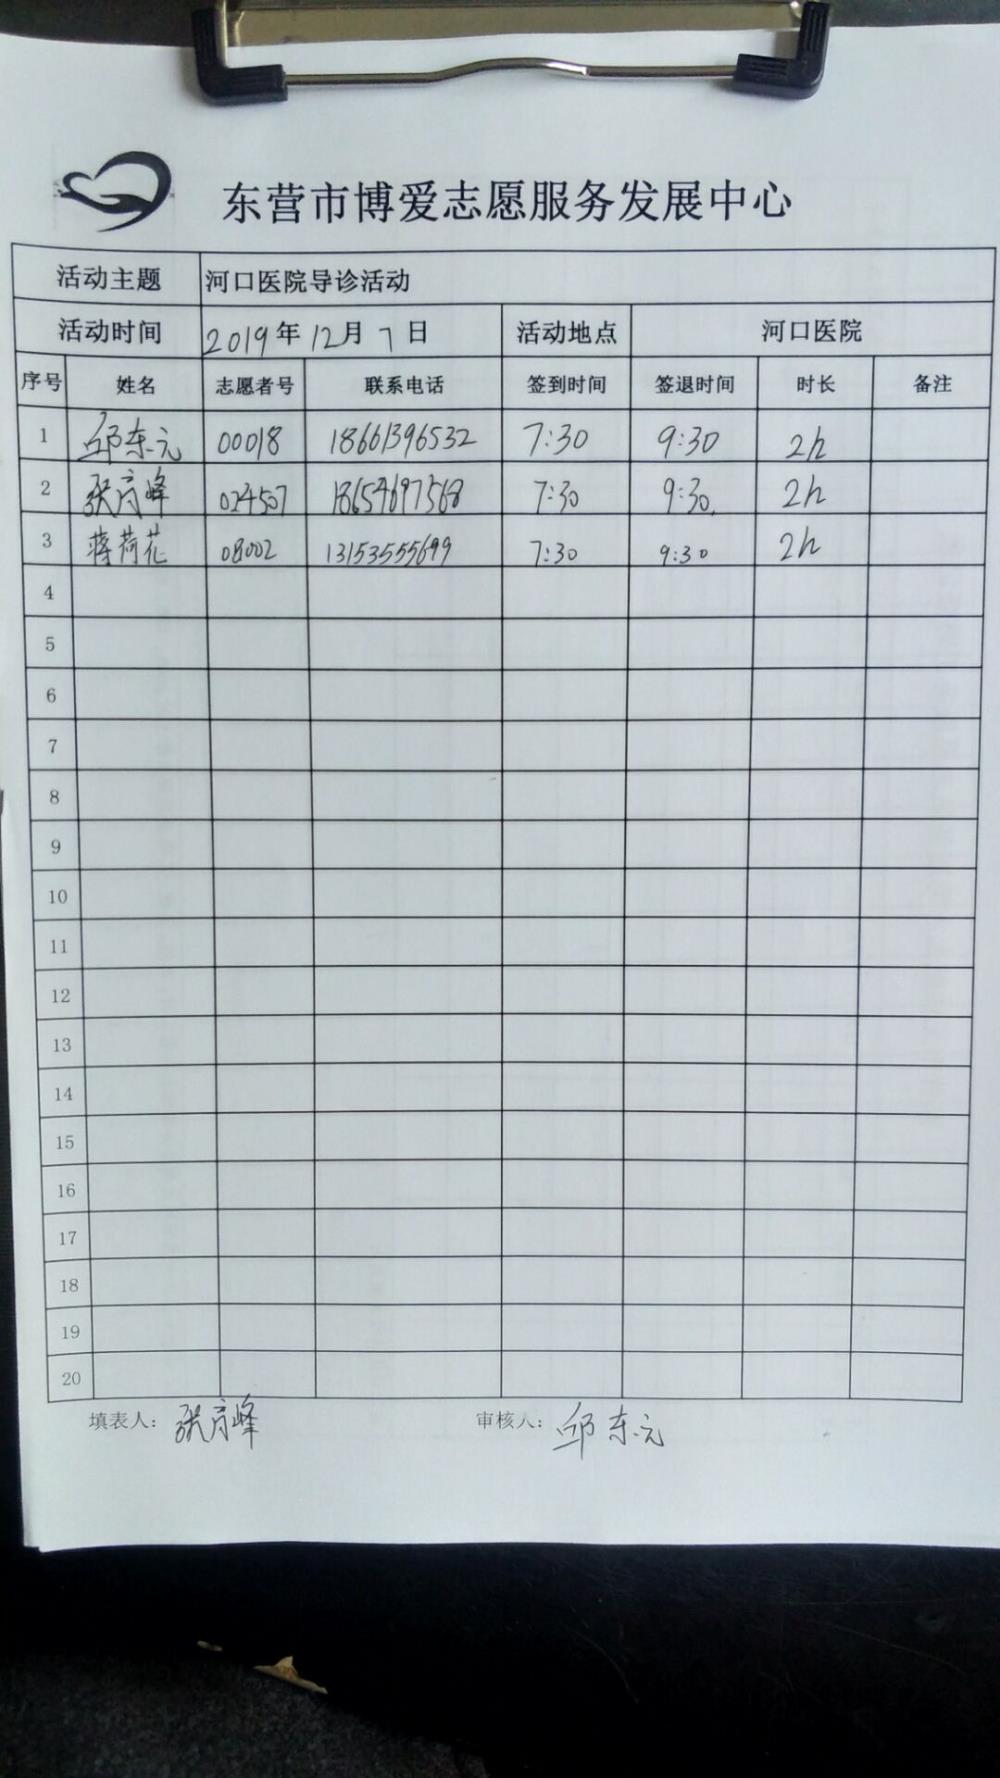 东营市博爱志愿服务发展中心
活动主题 河口医院导诊活动
活动时间 2019年12月7日 活动地点 河口医院
序号 姓名 志愿者号 联系电话 签到时间 签退时间 时长 备注
1 邱东元 00018 18661396532 7:30 9:30 2h
2 张 峰 024507 18654697568 7:30 9:30 2h
3 蒋荷花 08002 13153555699 7:30 9:30 2h
4
5
6
7
8
9
10
11
12
13
14
15
16
17
18
19
20
填表人: 张 峰 审核人: 邱东元